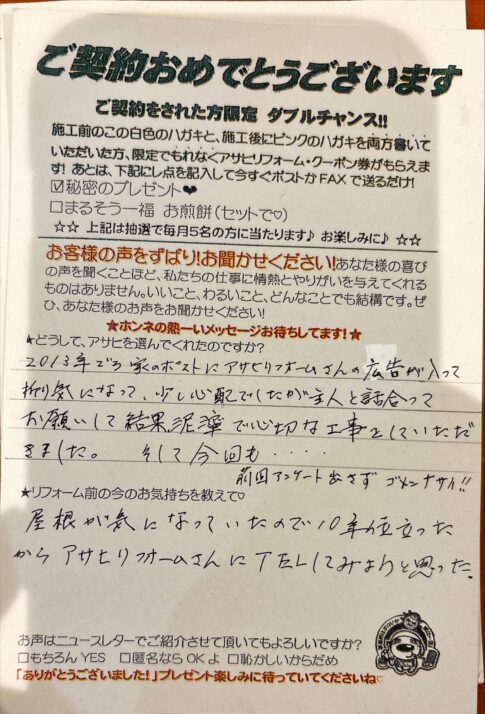 ご契約おめでとうございます
ご契約をされた方限定 ダブルチャンス!!
施工前のこの白色のハガキと、施工後にピンクのハガキを両方書いて
いただいた方、限定でもれなくアサヒリフォーム・クーポン券がもらえま
す! あとは、下記にレ点を記入して今すぐポストかFAXで送るだけ!
☑秘密のプレゼント❤
□まるそう一福 お煎餅(セットで♡)
☆☆ 上記は抽選で毎月5名の方に当たります♪ お楽しみに♪ ☆☆
お客様の声をずばり!お聞かせください!あなた様の喜び
の声を聞くことほど、私たちの仕事に情熱とやりがいを与えてくれる
ものはありません。いいこと、わるいこと、どんなことでも結構です。ぜ
ひ、あなた様のお声をお聞かせください!
★ホンネの熱ーいメッセージお待ちしてます!★
★どうして、アサヒを選んでくれたのですか?
2013年でう 家のポストにアサヒリフォームさんの広告が入って
折り気になって、少し心配でしたが主人と話合って
お願いして結果、泥濘で心切な工事をしていただ
きました。 そして今回も・・・・
前回アンケート出さず ゴメンナサイ!!
★リフォーム前の今のお気持ちを教えて♡
屋根が気になっていたので10年が立った
からアサヒリフォームさんにTELしてみようと思った。
お声はニュースレターでご紹介させて頂いてもよろしいですか?
□もちろんYES □匿名ならOKよ □恥かしいからだめ
「ありがとうございました!」プレゼント楽しみに待っていてくださいね♡